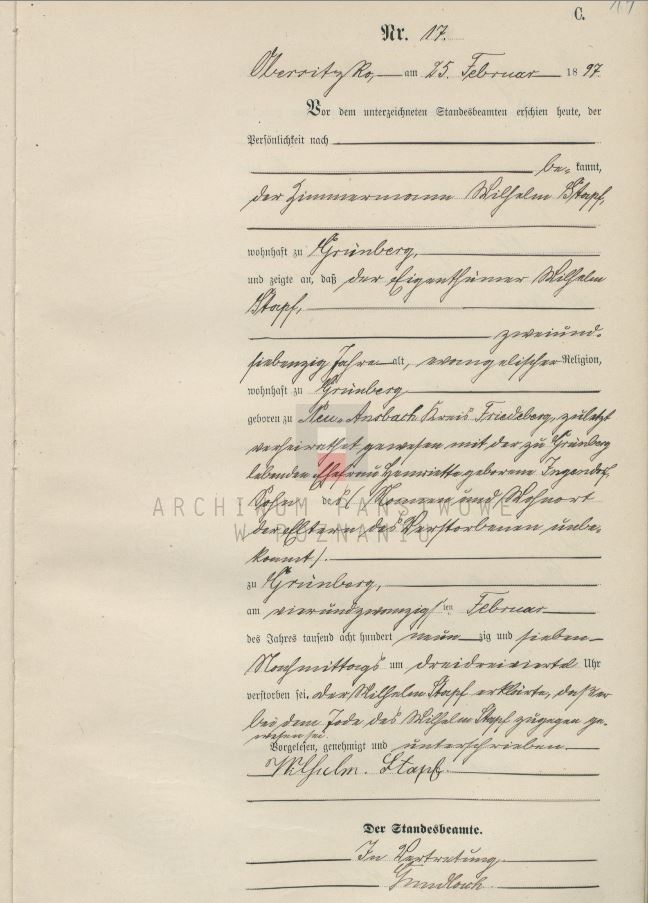 C.
Nr. 17.
Obersitzko, am 25. Februar 1897.
Vor dem unterzeichneten Standesbeamten erschien heute, der
Persönlichkeit nach
be- kannt,
der Zimmermann Wilhelm Stapf,
wohnhaft zu Grünberg,
und zeigte an, daß der Eigenthümer Wilhelm
Stapf,
zweiund-
siebenzig Jahre alt, evangelischer Religion,
wohnhaft zu Grünberg
geboren zu Neu-Ansbach Kreis Friedeberg, zuletzt
verheirathet gewesen mit der zu Grünberg
lebenden Ehefrau Henriette geborene
Sohn des (Namen und Wohnort
der Eltern des Verstorbenen unbe-
kannt).
ARCHIWUM PAŃSTWOWE
W POZNANIU
zu Grünberg,
am vierundzwanzigsten Februar
des Jahres tausend acht hundert neunzig und sieben
Nachmittags um dreidreiviertel Uhr
verstorben sei. Der Wilhelm Stapf erklärte, daß er
bei dem Tode des Wilhelm Stapf zugegen ge-
wesen sei.
Vorgelesen, genehmigt und unterschrieben.
Wilhelm. Stapf
Der Standesbeamte.
In Vertretung
Gundlach